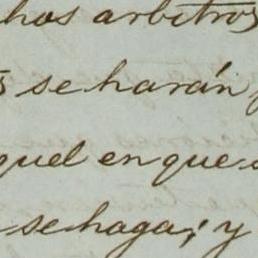 hos arbitros
s se harán
quel en que
se haga; y